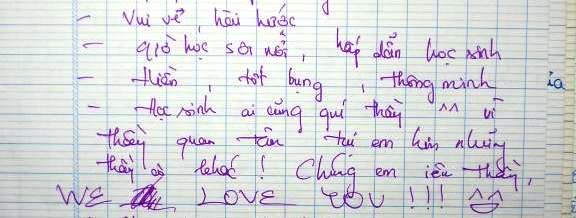 - Vui vẻ, hài hước
- giờ học sôi nổi, hấp dẫn học sinh
- Hiền, tốt bụng, thông minh
- Học sinh ai cũng quí thầy ^^ vì
thầy quan tâm tụi em hơn những
thầy cô khác! Chúng em iêu thầy,
WE LOVE YOU!!! ^^